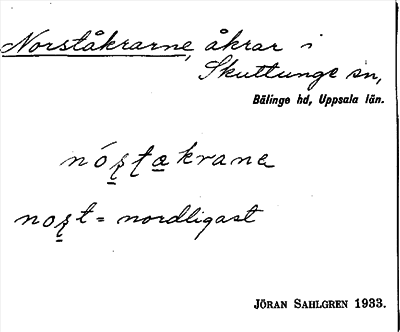 Norståkrarne, åkrar i
Skuttunge sn,
Bälinge hd, Uppsala län.
nóʂtakrane
noʂt = nordligast
JÖRAN SAHLGREN 1933.